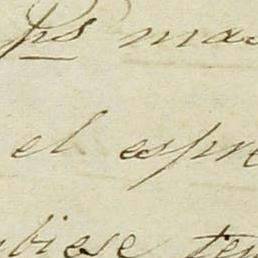 ps mas
el espre
biese ten